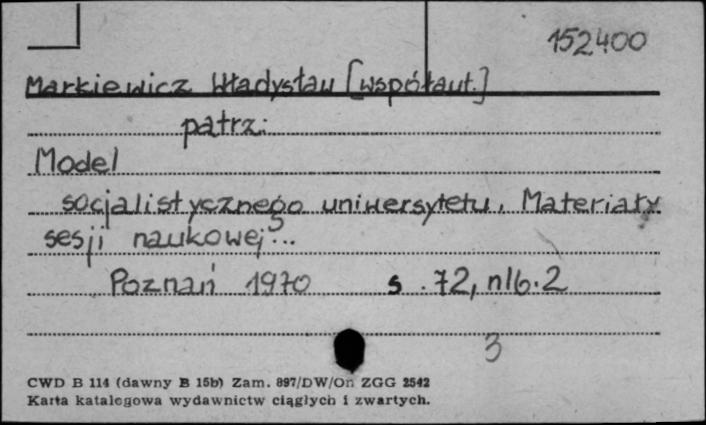 152400
Markiewicz Władysław [współaut.]
patrz:
Model
socjalistycznego uniwersytetu. Materiały
sesji naukowej...
Poznań 1970 s. 72, nlb. 2
3
CWD B 114 (dawny B 15b) Zam. 897/DW/On ZGG 2542
Karta katalogowa wydawnictw ciągłych i zwartych.